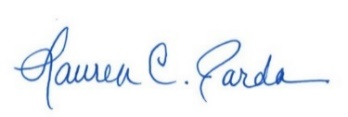 Lauren C. Parda